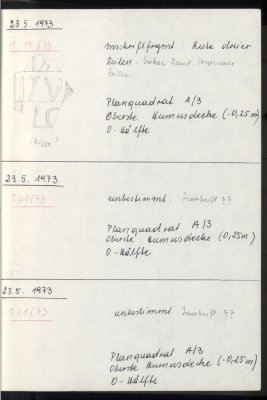 23.5.1973
119/73
Inschriftfragmt. Reste dreier
Zeilen - linker Rand.
Zeilen
IVV
LC
Skizze!
Planquadrat A/3
Oberste Humusdecke (-0,25m)
O-Hälfte
23.5.1973
120/73
unbestimmt. Inschrift ??
Planquadrat A/3
Oberste Humusdecke (-0,25m)
O-Hälfte
23.5.1973
121/73
unbestimmt Inschrift ??
Planquadrat A/3
Oberste Humusdecke (-0,25m)
O-Hälfte.